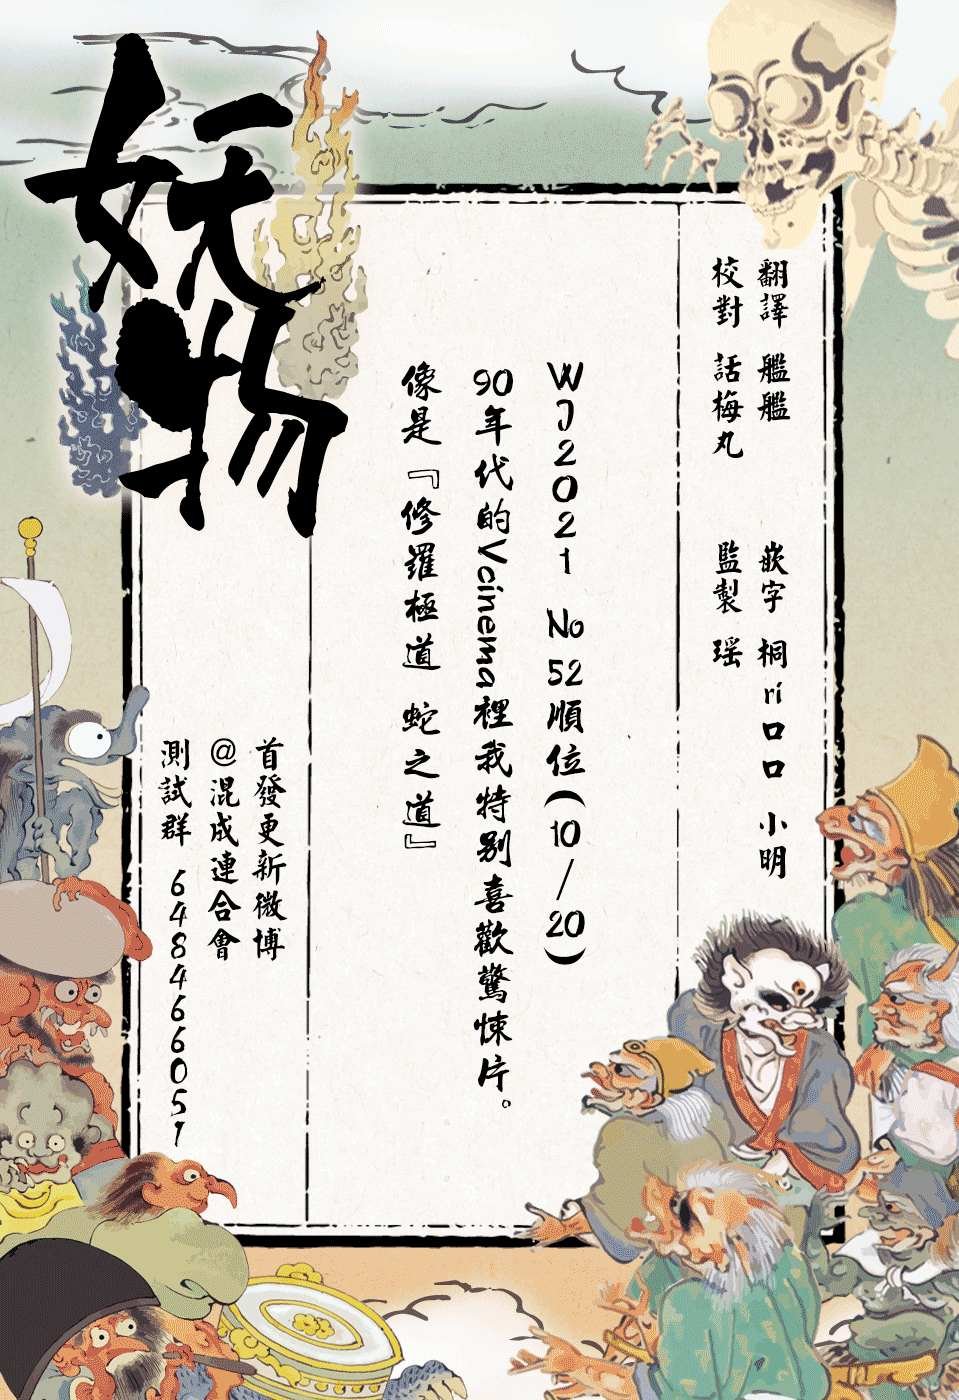 妖物
翻譯 艦艦
校對 話梅丸
嵌字 桐ri口口 小明
監製 瑶
WJ2021 No52順位(10/20)
90年代的Vcinema裡我特别喜歡驚悚片。
像是『修羅極道 蛇之道』
首發更新微博
@混成連合會
測試群 648466051